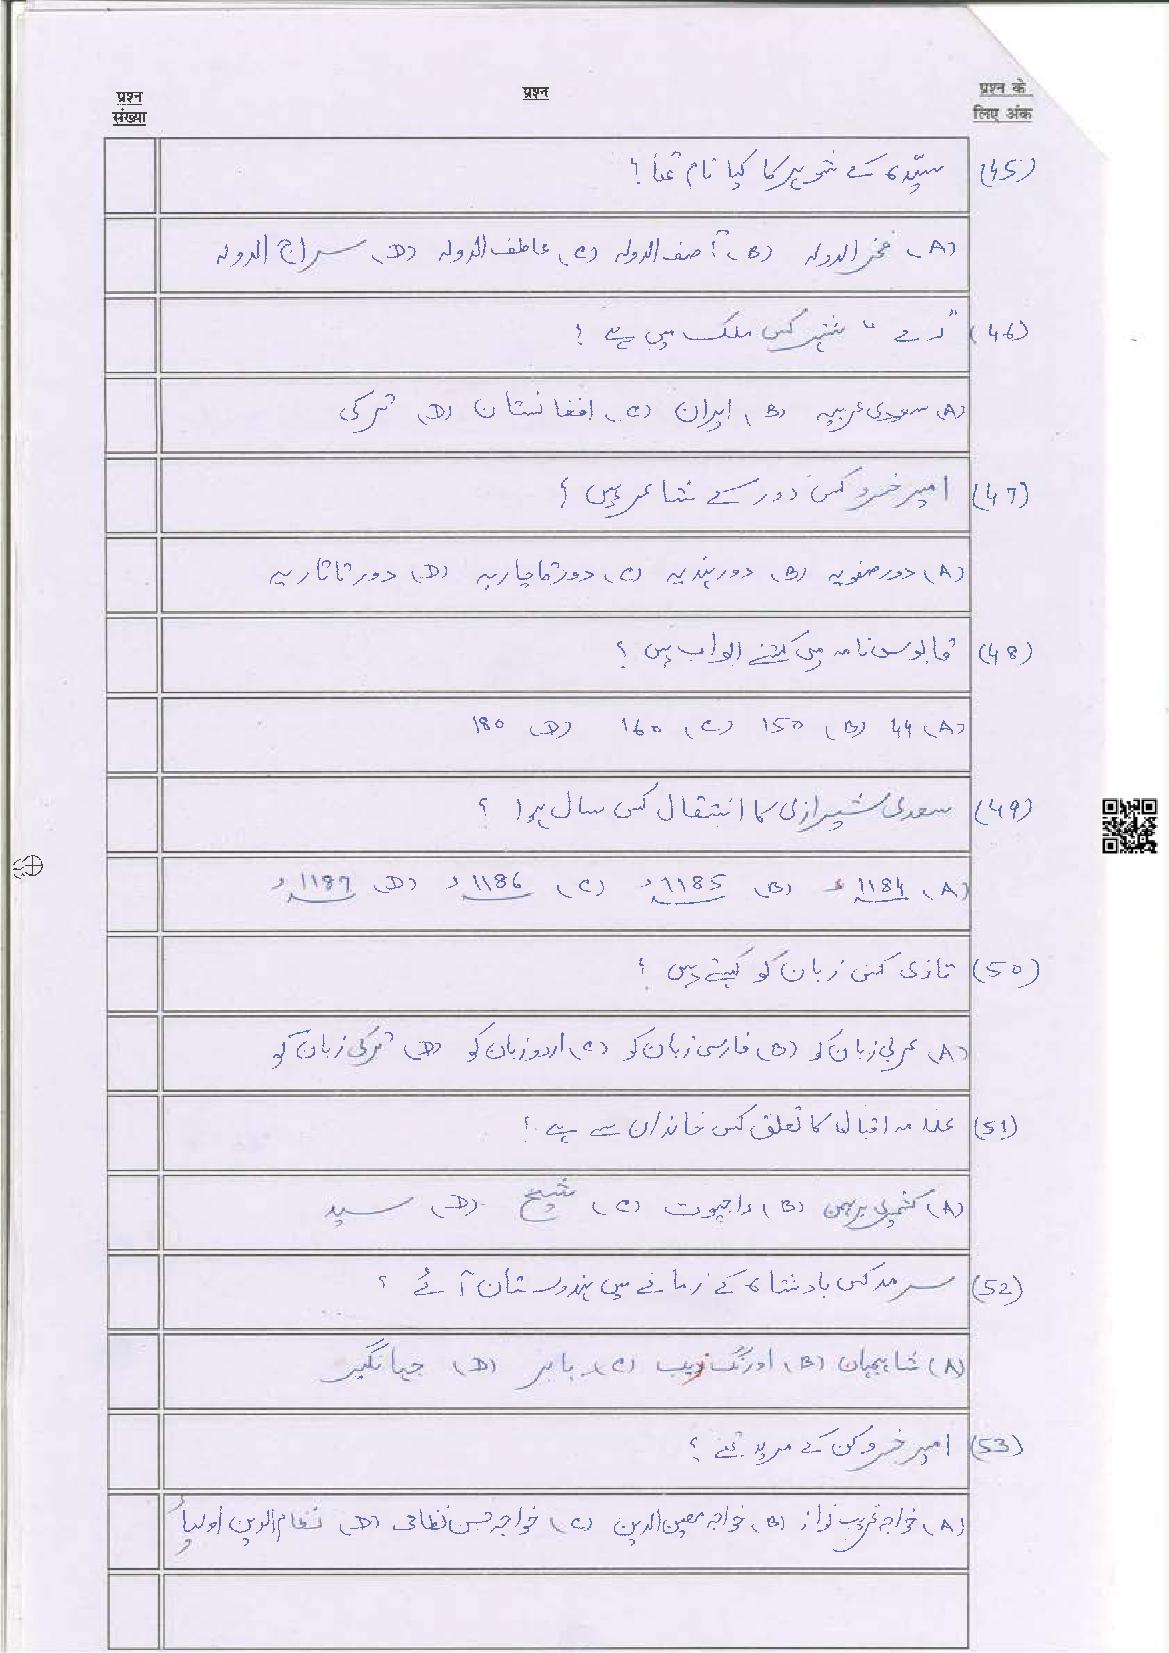 प्रश्न संख्या
प्रश्न
प्रश्न के लिए अंक
(45) سیّدہ کے شوہر کا کیا نام تھا؟
(A) فخر الدولہ (B) آصف الدولہ (C) عاطف الدولہ (D) سراج الدولہ
(46) "رے" شہر کس ملک میں ہے ؟
(A) سعودی عربیہ (B) ایران (C) افغانستان (D) ترکی
(47) امیر خسرو کس دور کے شاعر ہیں ؟
(A) دور صفویہ (B) دور ہندیہ (C) دور قاچاریہ (D) دور تاتاریہ
(48) قابوس نامہ میں کتنے ابواب ہیں ؟
(A) 44 (B) 150 (C) 160 (D) 180
(49) سعدی شیرازی کا انتقال کس سال ہوا ؟
(A) 1184ء (B) 1185ء (C) 1186ء (D) 1187ء
(50) تازی کس زبان کو کہتے ہیں ؟
(A) عربی زبان کو (B) فارسی زبان کو (C) اردو زبان کو (D) ترکی زبان کو
(51) علامہ اقبال کا تعلق کس خاندان سے ہے ؟
(A) کشمیری برہمن (B) راجپوت (C) شیخ (D) سید
(52) سرمد کس بادشاہ کے زمانے میں ہندوستان آئے ؟
(A) شاہجہاں (B) اورنگ زیب (C) بابر (D) جہانگیر
(53) امیر خسرو کن کے مرید تھے ؟
(A) خواجہ غریب نواز (B) خواجہ معین الدین (C) خواجہ حسن نظامی (D) نظام الدین اولیاء